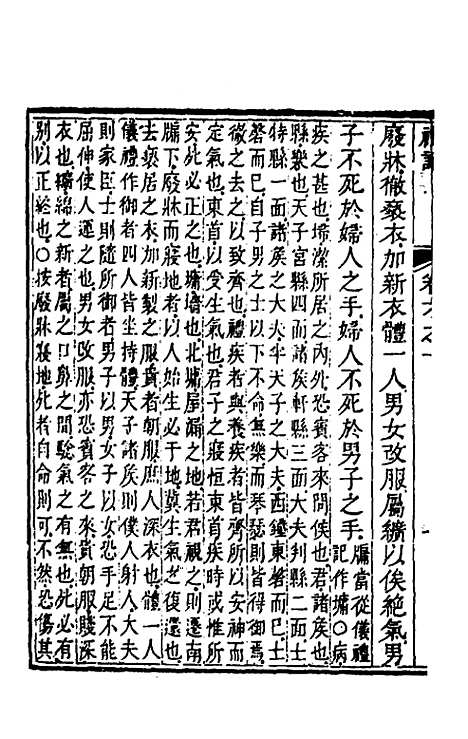 禮記
卷六之一
廢牀徹褻衣加新衣體一人男女改服屬纊以俟絕氣男
子不死於婦人之手婦人不死於男子之手牖當從儀禮記作墉〇病
疾之甚也埽潔所居之內外恐賓客來問候也君諸侯也
縣樂也天子宮縣四面諸侯軒縣三面大夫判縣二面士
特縣一面諸侯之大夫半天子之大夫西鐘東磬而巳士
磬而巳自子男之士以下不命無樂而琴瑟則皆得有焉
徹之去之以致齊也禮疾者與養疾者皆齊所以安神而
定氣也東首以受生氣也君子之寢恒東首疾時或惟所
安死必正之也墉牆也北墉屋漏之地若君視之則遷南
牖下廢牀而寢地者以人始生必于地冀生氣之復還也
去褻居之衣加新製之服貴者朝服庶人深衣也體一人
儀禮作御者四人皆坐持體天子諸侯則僕人射人大夫
則家臣士則隨所御者男子以男女子以女恐手足不能
屈伸使人運之也男女改服亦恐賓客之來貴朝服賤深
衣也纊綿之新者屬之口鼻之間驗氣之有無也死必有
別以正終也〇按廢牀寢地死者自命則可不然恐傷其